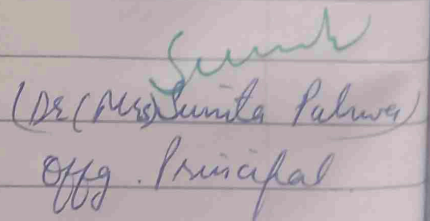 Sunita
(Dr (Mrs) Sunita Palwa)
Offg. Principal